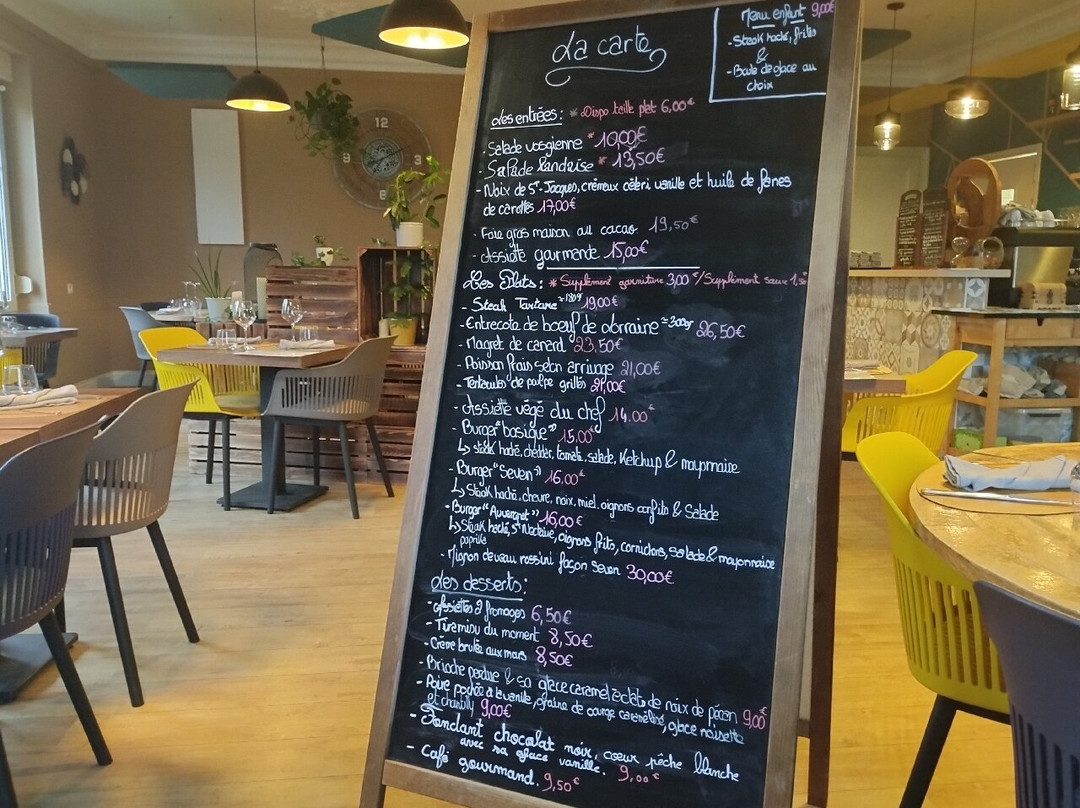 La carte
Menu enfant 9,00€
- Steak haché, frites
&
- Boule de glace au
choix
Les entrées : * Dispo taille plat 6,00€
- Salade vosgienne * 10,00€
- Salade landaise * 13,50€
- Noix de St-Jacques, crémeux céleri vanille et huile de fanes
de carottes 17,00€
- Foie gras maison au cacao 19,50€
- Assiette gourmande 15,00€
Les Plats : * Supplément garniture 3,00€ / Supplément sauce
- Steak Tartare ≈180g 19,00€
- Entrecote de boeuf de lorraine ≈300gr 26,50€
- Magret de canard 23,50€
- Poisson frais selon arrivage 21,00€
- Tentacules de poulpe grillés 21,00€
- Assiette végé du chef 14,00€
- Burger "basique" 15,00€
↳ steak haché, cheddar, tomate, salade, Ketchup & mayonnaise
- Burger "Seven" 16,00€
↳ Steak haché, chèvre, noix, miel, oignons confits & Salade
- Burger "Auvergnat" 16,00€
↳ Steak haché, St Nectaire, oignons frits, cornichons, salade & mayonnaise
paprika
- Mignon de veau rossini façon Seven 30,00€
Les desserts :
- Assiettes 3 fromages 6,50€
- Tiramisu du moment 8,50€
- Crème brulée aux mars 8,50€
- Brioche perdue & sa glace caramel éclats de noix de pécan 9,00€
- Poire pochée à la vanille, graine de courge caramélisé, glace noisette
et chantilly 9,00€
- Fondant chocolat noir, coeur pêche blanche
avec sa glace vanille. 9,00€
- Café gourmand. 9,50€
12
3
6
9